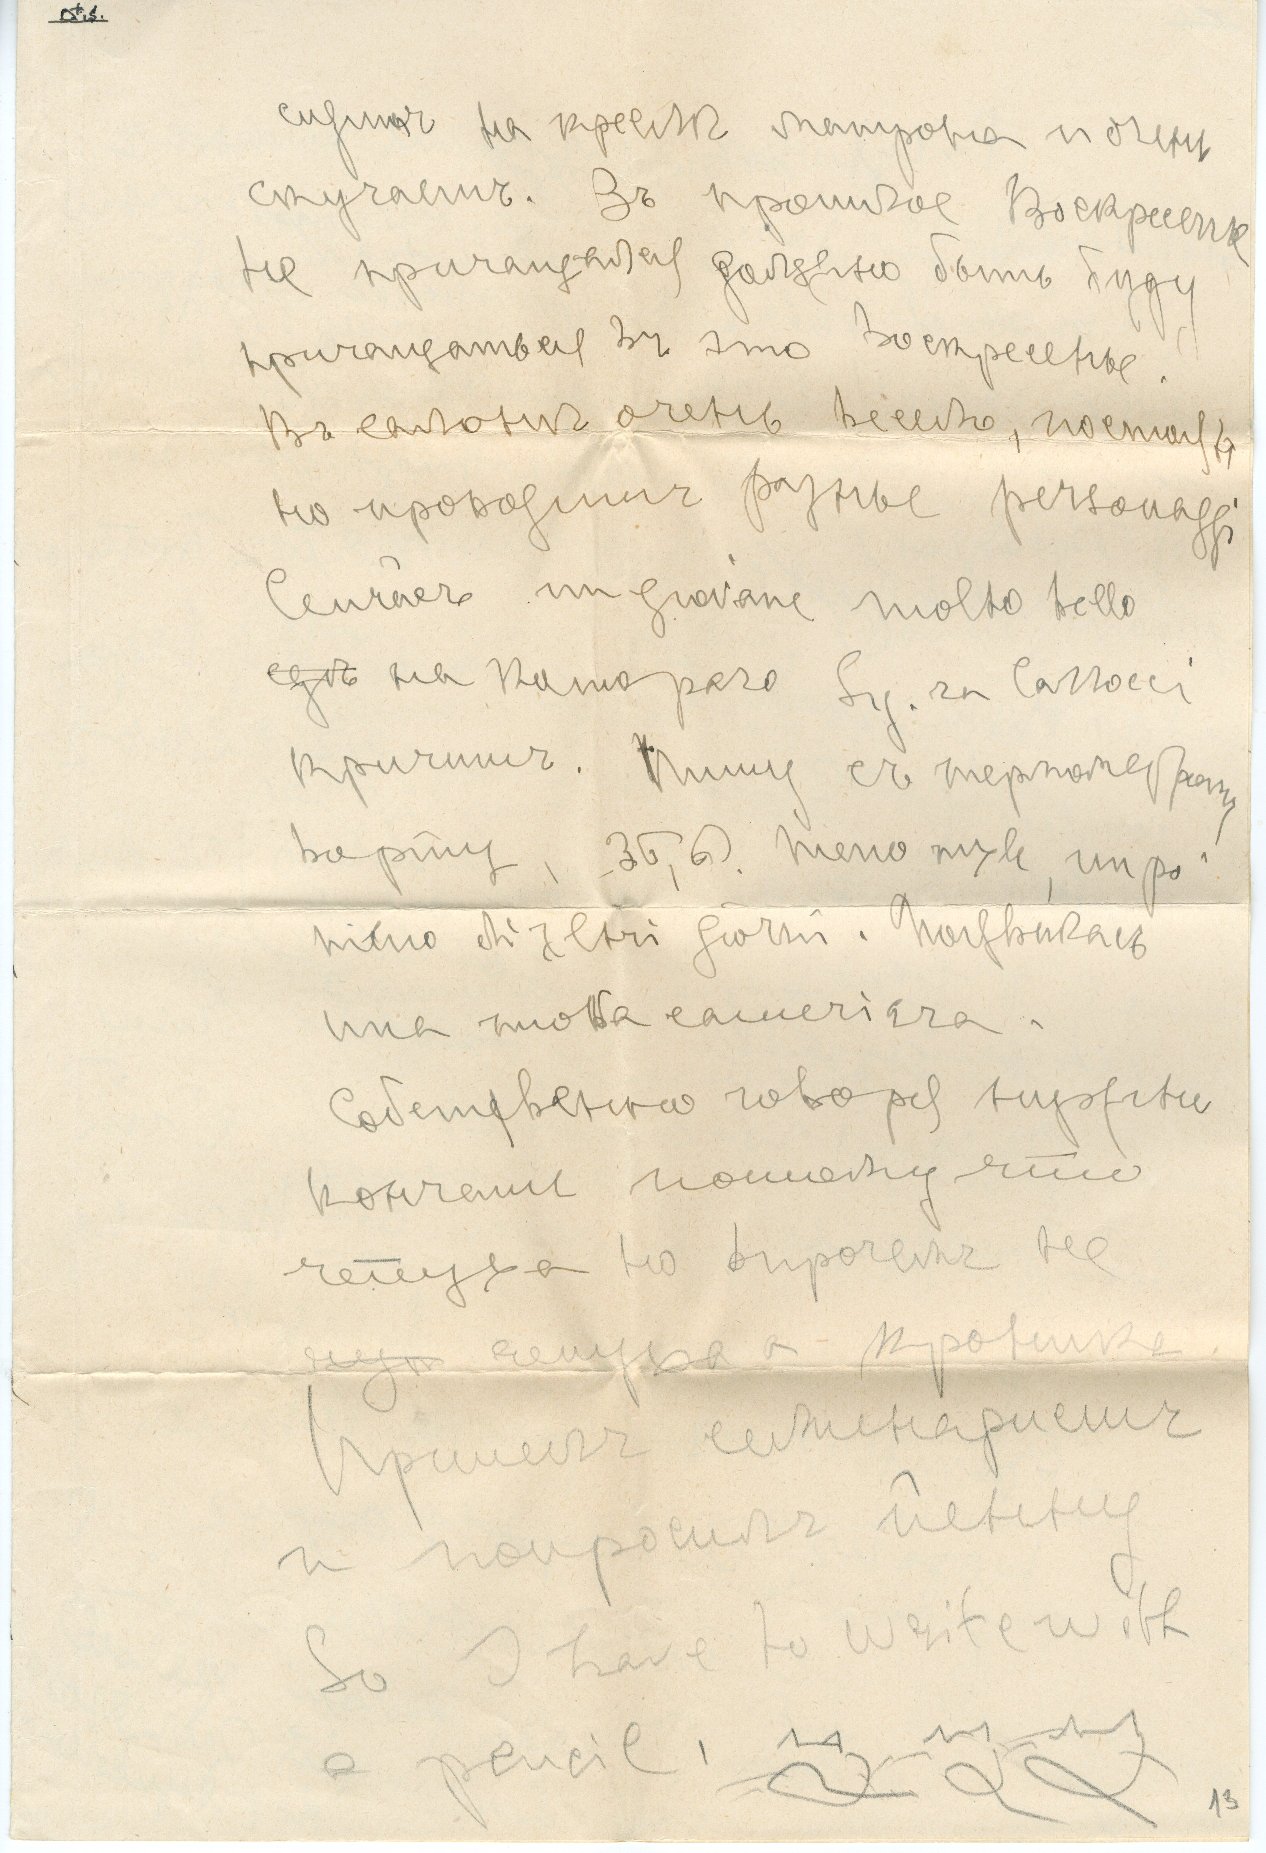 сидитъ на креслѣ матрона и очень
скучаетъ. Въ прошлое Воскресенье
не причащался должно быть буду
причащаться въ это воскресенье.
Въ салонѣ очень весело, постоян
но проводятъ разные personaggi
Сейчасъ un giovane molto bello
на котораго Sig.ra
кричитъ. Пишу съ термометромъ
во рту, 36,6. Meno male, un po'
меno di altri giorni. Появилась
una nuova cameriera.
Собственно говоря нужно
кончать потому что
чепуха но впрочемъ не
чепуха а хроника.
Пришелъ семинаристъ
и попросилъ пенну
So I have to write with
a pencil.
13